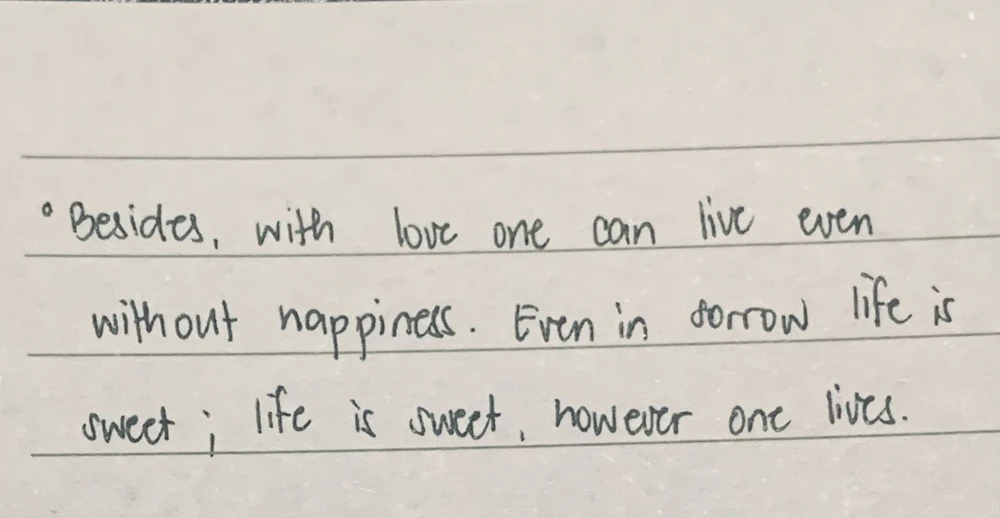 ° Besides, with love one can live even
without happiness. Even in sorrow life is
sweet; life is sweet, however one lives.